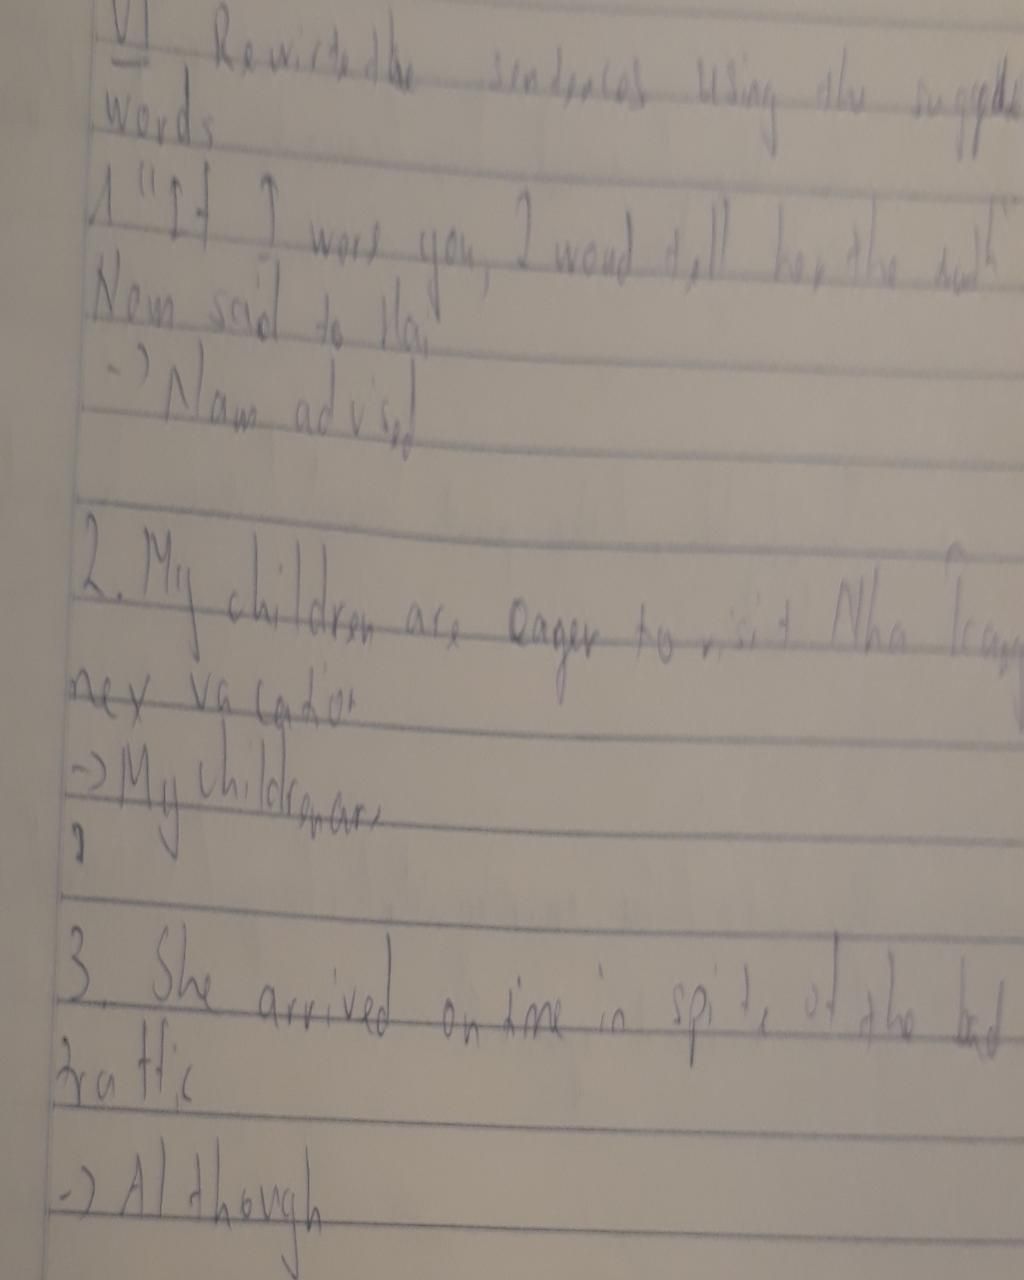 VI Rewirte the sentences using the
words
1 "If I were you, I woud tell her the
Nam said to Hai
-> Nam advised
2. My children are eager to visit Nha Trang
nex vacation
-> My children are
3. She arrived on time in spite of the bad
traffic
-> Although